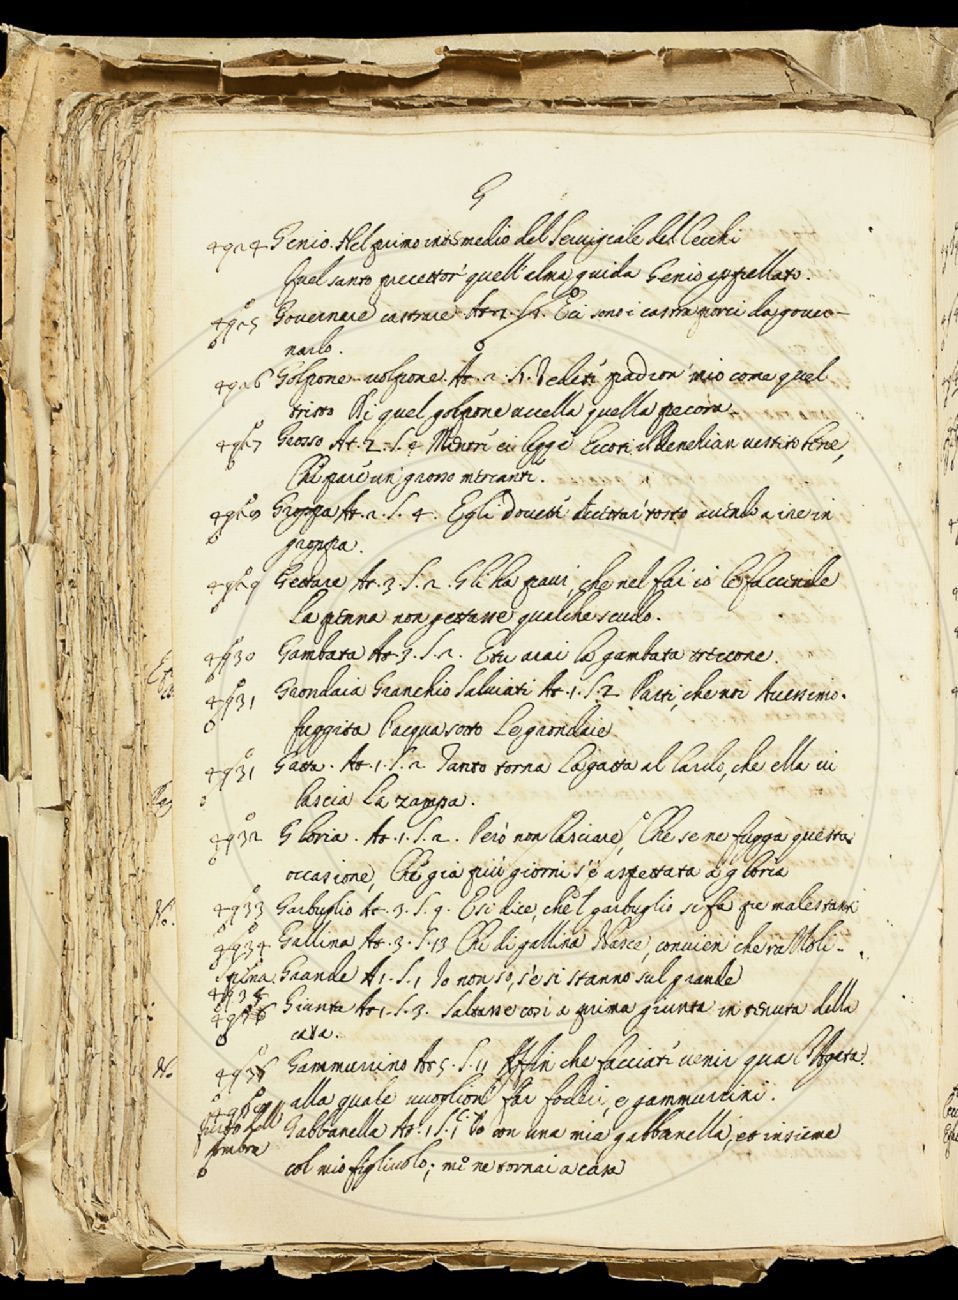 G
4924 Genio. Nel primo intermedio del Servigiale del Cecchi
Quel santo precettor quell'alma guida Genio appellato.
4925 Governare castrare At. 2. S. 1. Eci sono i castraporci da gover-
narlo.
4926 Golpone volpone. At. 2. S. 1. Vedeti padron mio come quel
tristo Di quel golpone uccella quella pecora
4927 Grosso At. 2. S. Eccoti il Venetian vestito bene,
Che pare un grosso mercante.
Groppa At. 2. S. 4. Egli dovette tosto avendo a ire in
groppa.
4929 Gettare At. 3. S. 2. Gli ha paur, che nel far io le faccende
La penna non gettasse qualche scudo.
4930 Gambata At. 3. S. 2. E tu arai la gambata treccone.
4931 Grondaia Granchio Salviati At. 1. S. 2 Patti, che noi Avessimo.
fuggita l'acqua sotto Le grondaie
4931 Gatta. At. 1. S. 2 Tanto torna la gatta al lardo, che ella vi
lascia La zampa.
4932 Gloria. At. 1. S. 2. Però non lasciare, Che se ne fugga questa
occasione, Che già più giorni s'è aspettata a gloria
No. 4933 Garbuglio At. 3. S. 9. E si dice, che'l garbuglio si fa pe malestanti
4934 Gallina At. 3. S. 13 Chi di gallina Nasce, convien che razzoli
spina Grande At. 1. S. 1 Io non so, s'e si stanno sul grande
4935
Giunta At. 1. S. 3. Saltasse così a prima giunta in tenuta della
casa.
No 4936 Gammurrino At. 5. S. 11 Affin che facciate venir qua l'Agata
alla quale vuoglion far foderi, e gammurrini.
Gabbanella At. 1. S. 1 Io con una mia gabbanella, et insieme
ombre
col mio figliuolo; me ne tornai a casa